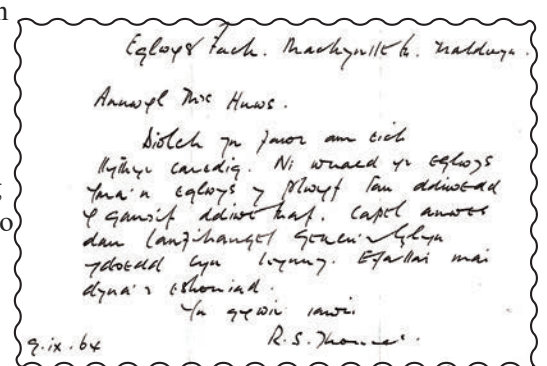 Eglwys Fach. Machynlleth. Maldwyn.
Annwyl Mrs Huws.
Diolch yn fawr am eich
llythyr caredig. Ni wnaed yr eglwys
yma'n eglwys y plwyf tan ddiwedd
y ganrif ddiwethaf. Capel anwes
dan Lanfihangel Genau'r Glyn
ydoedd cyn hynny. Efallai mai
dyna'r eboniad.
Yn gywir iawn
R.S. Thomas.
9.ix.64